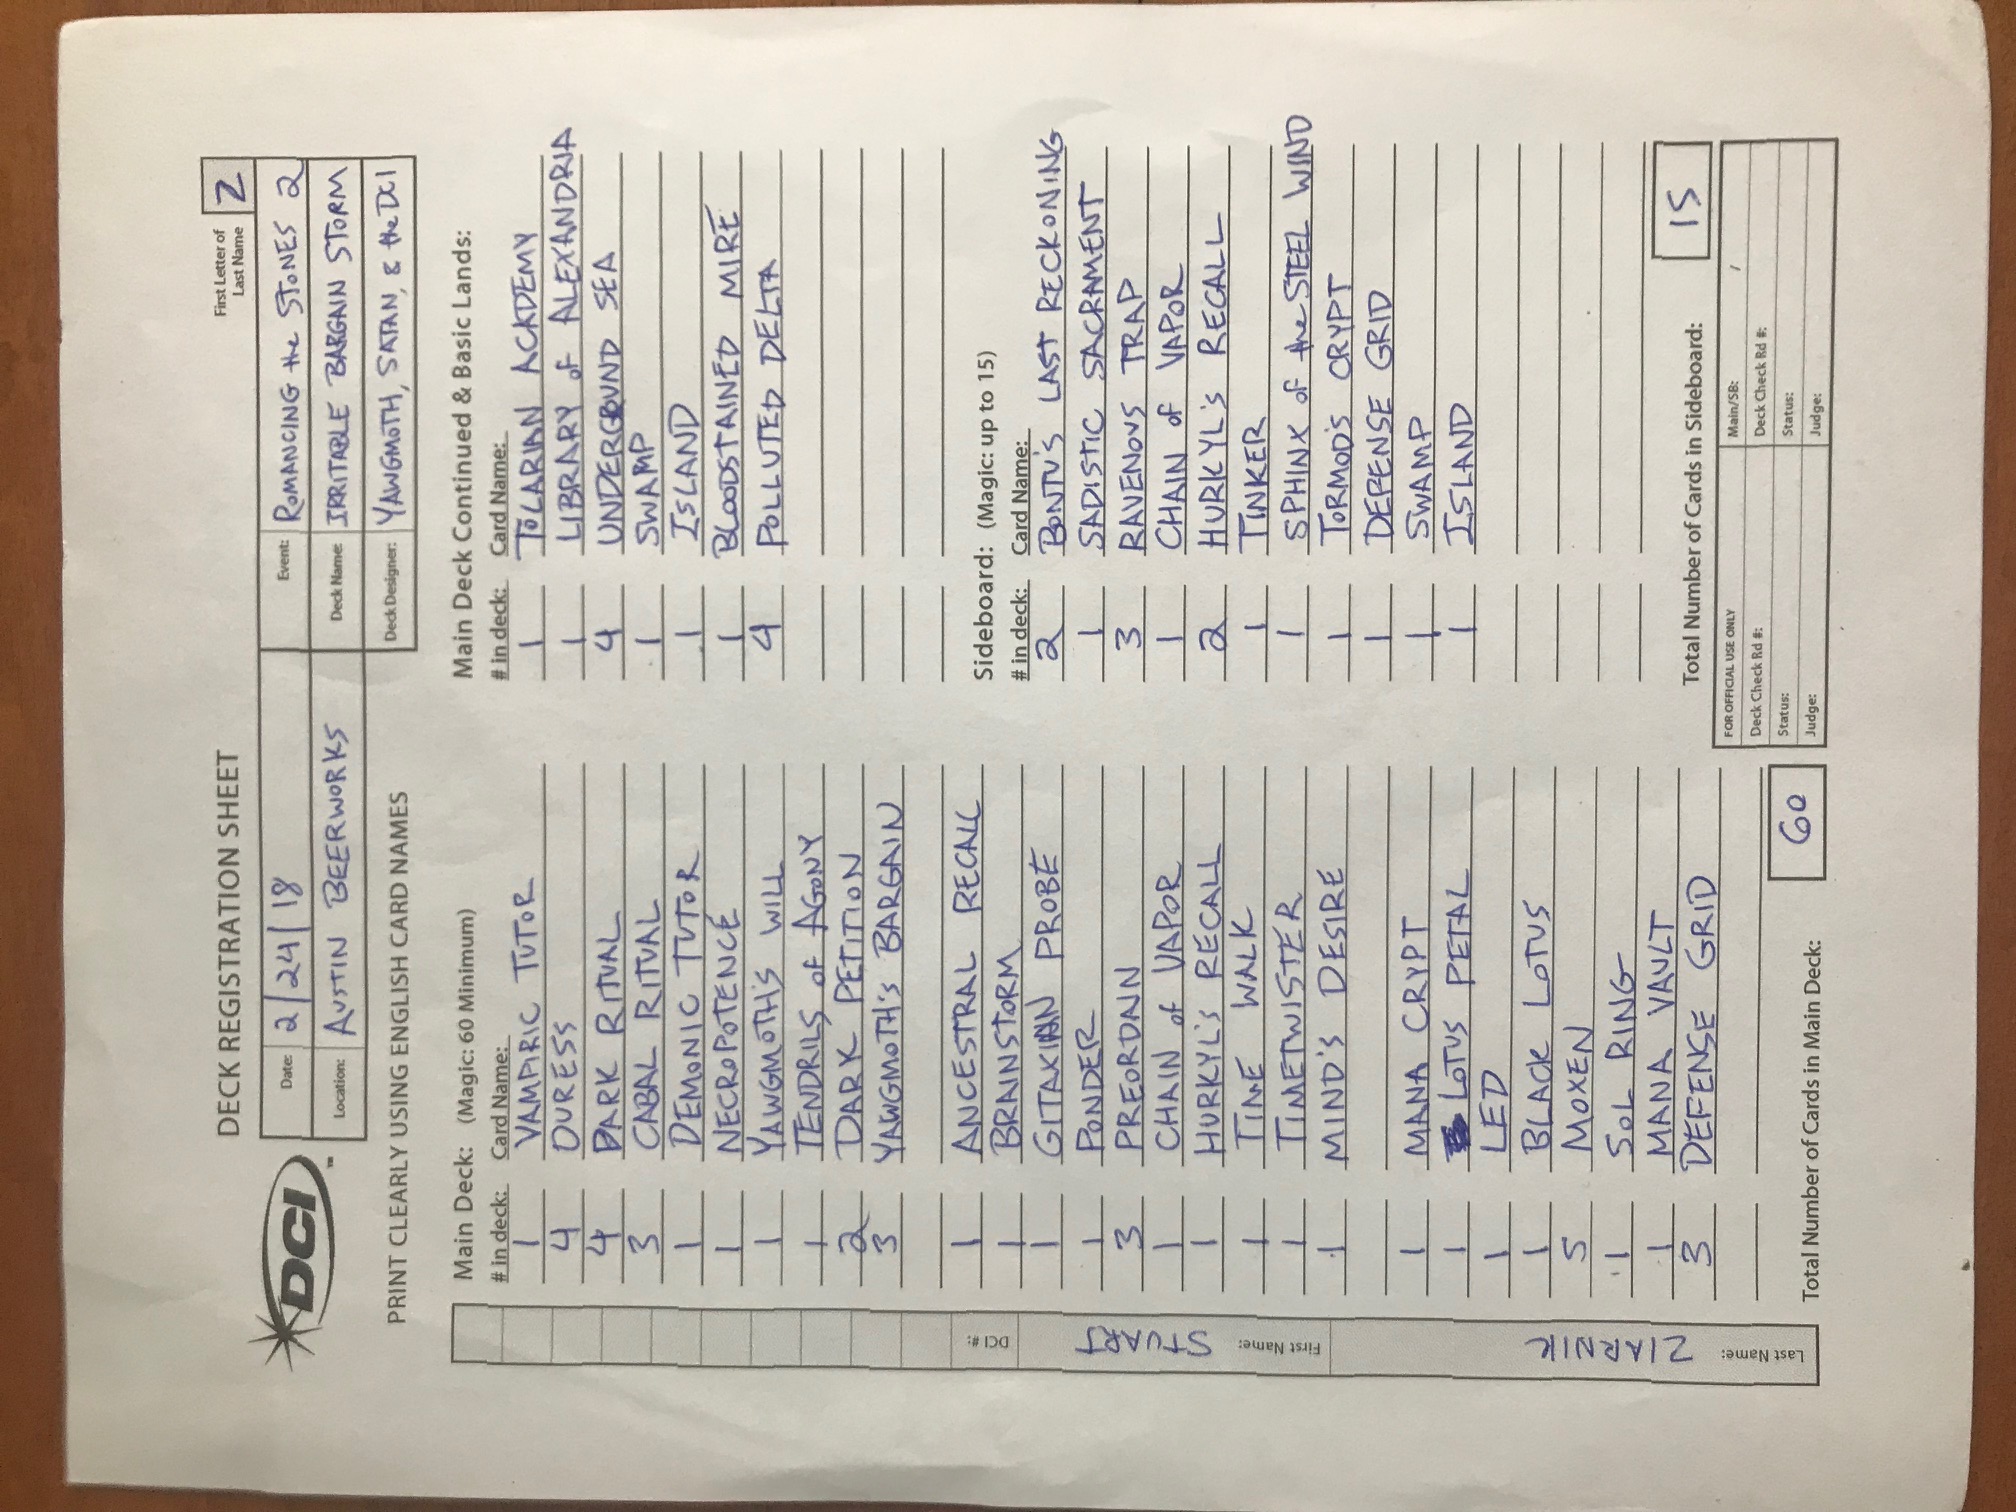 DECK REGISTRATION SHEET
First Letter of Last Name Z
DCI
Date: 2/24/18
Event: ROMANCING the STONES 2
Location: AUSTIN BEERWORKS
Deck Name: IRRITABLE BARGAIN STORM
Deck Designer: YAWGMOTH, SATAN, & the DCI
PRINT CLEARLY USING ENGLISH CARD NAMES
DCI #:
First Name: STUART
Last Name: ZIARNIK
Main Deck: (Magic: 60 Minimum)
# in deck: Card Name:
1 VAMPIRIC TUTOR
4 DURESS
4 DARK RITUAL
3 CABAL RITUAL
1 DEMONIC TUTOR
1 NECROPOTENCE
1 YAWGMOTH'S WILL
1 TENDRILS of AGONY
2 DARK PETITION
3 YAWGMOTH'S BARGAIN
1 ANCESTRAL RECALL
1 BRAINSTORM
1 GITAXIAN PROBE
1 PONDER
3 PREORDAIN
1 CHAIN of VAPOR
1 HURKYL'S RECALL
1 TIME WALK
1 TIMETWISTER
1 MIND'S DESIRE
1 MANA CRYPT
1 LOTUS PETAL
1 LED
1 BLACK LOTUS
5 MOXEN
1 SOL RING
1 MANA VAULT
3 DEFENSE GRID
Total Number of Cards in Main Deck: 60
Main Deck Continued & Basic Lands:
# in deck: Card Name:
1 TOLARIAN ACADEMY
1 LIBRARY of ALEXANDRIA
4 UNDERGROUND SEA
1 SWAMP
1 ISLAND
1 BLOODSTAINED MIRE
4 POLLUTED DELTA
Sideboard: (Magic: up to 15)
# in deck: Card Name:
2 BONTU'S LAST RECKONING
1 SADISTIC SACRAMENT
3 RAVENOUS TRAP
1 CHAIN of VAPOR
2 HURKYL'S RECALL
1 TINKER
1 SPHINX of the STEEL WIND
1 TORMOD'S CRYPT
1 DEFENSE GRID
1 SWAMP
1 ISLAND
Total Number of Cards in Sideboard: 15
FOR OFFICIAL USE ONLY
Main/SB: /
Deck Check Rd #:
Deck Check Rd #:
Status:
Status:
Judge:
Judge: